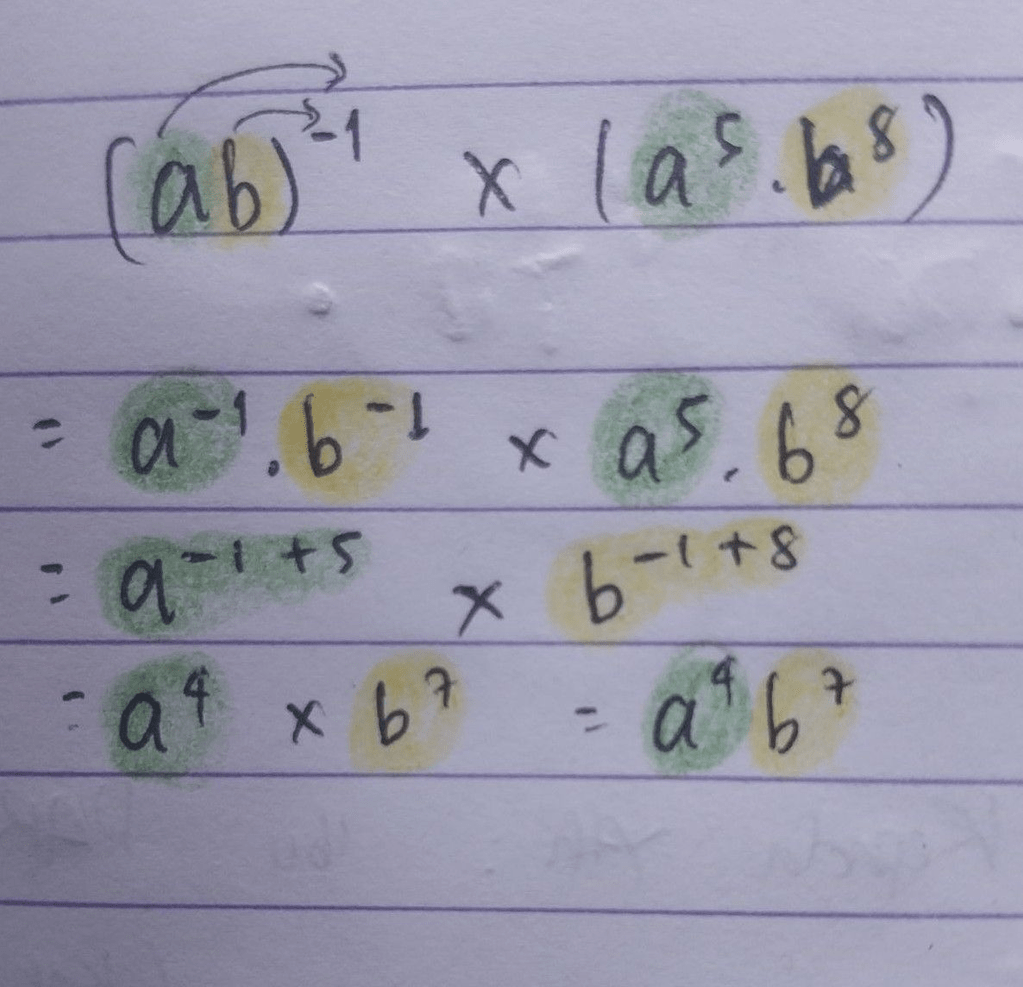 (ab)⁻¹ × (a⁵ . b⁸)
= a⁻¹ . b⁻¹ × a⁵ . b⁸
= a⁻¹⁺⁵ × b⁻¹⁺⁸
= a⁴ × b⁷ = a⁴b⁷